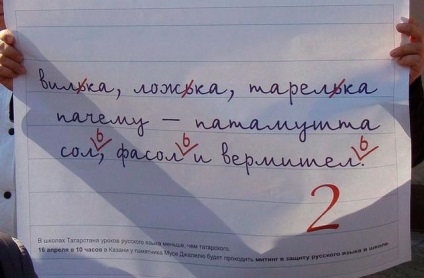 вилька, ложька, тарелька
пачему — патамушта
соль, фасоль и вермишель.
2
В школах Татарстана уроков русского языка меньше, чем татарского.
16 апреля в 10 часов в Казани у памятника Мусе Джалилю будет проходить митинг в защиту русского языка в школе.